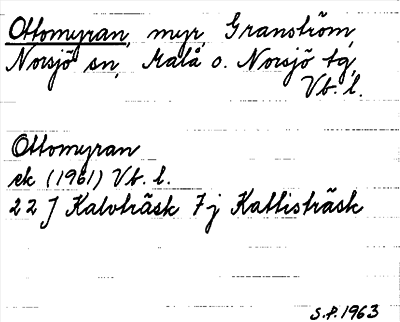 Ottomyran, myr, Granström,
Norsjö sn, Malå o. Norsjö tg,
Vb. l.
Ottomyran
ek (1961) Vb. l.
22 J Kalvträsk 7 j Kattisträsk
S.P. 1963